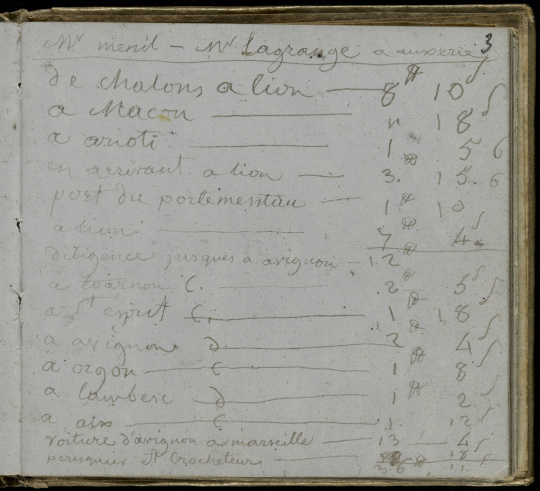 Mr menil — Mr Lagrange a auxerre 3
de chalons a lion — 8 # 10 s
a Macon — 18 s
a anoti — 1 5 6
en arrivant a lion — 3. 15. 6
port du portementau — 1 # 10
a lion — 7 # 4 s
diligence jusques a avignon — 12 #
a tournon C. — 2 # 5 s
a St esprit C. — 1 # 18 s
a avignon d — 2 # 4 s
a orgon — C — 1 # 8 s
a lambese d — 1 # 2 s
a aix — C — 1 12 s
voiture d'avignon a marseille — 13 — 4 s
perruquier et Crocheteur — 18 s
36 # 11